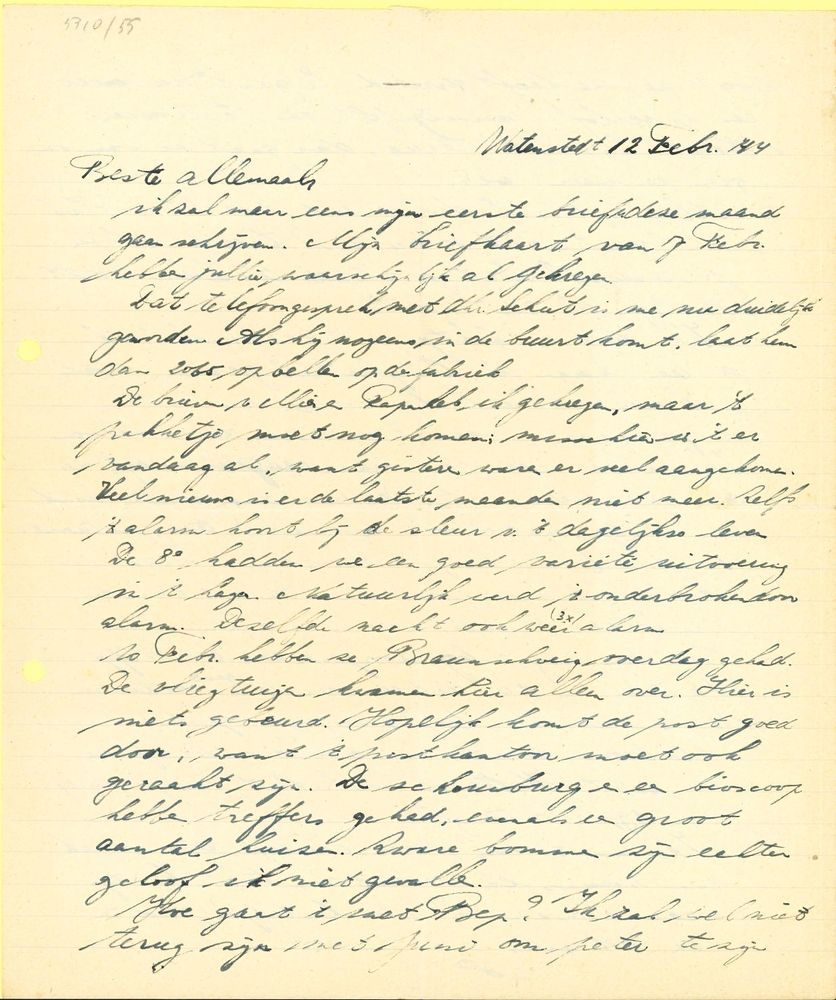 5310/55
Watenstedt 12 Febr. '44
Beste allemaals
ik zal maar eens mijn eerste brief deze maand
gaan schrijven. Mijn briefkaart van 7 Febr.
hebben jullie waarschijnlijk al gekregen.
Dat telefoongesprek met dhr. Schut is me nu duidelijk
geworden. Als hij nog eens in de buurt komt, laat hem
dan 2065 opbellen op de fabriek
De brieven v. Mien en Papa heb ik gekregen, maar 't
pakketje moet nog komen; misschien is 't er
vandaag al, want gisteren waren er veel aangekomen.
Veel nieuws is er de laatste maanden niet meer. Zelfs
't alarm hoort bij de sleur v. 't dagelijkse leven
De 8e hadden we een goed variété uitvoering
in 't lager. Natuurlijk werd 't onderbroken door
alarm. Dezelfde nacht ook weer (3x) alarm
10 Febr. hebben ze Braunschweig overdag gehad.
De vliegtuigen kwamen hier allen over. Hier is
niets gebeurd. Hopelijk komt de post goed
door, want 't postkantoor moet ook
geraakt zijn. De schouwburg en een bioscoop
hebben treffers gehad, evenals een groot
aantal huizen. Zware bommen zijn echter
geloof ik niet gevallen.
Hoe gaat 't met Bep? Ik zal wel niet
terug zijn met Juni om peter te zijn